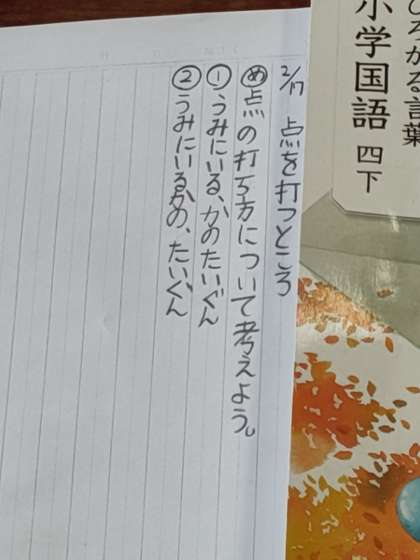 ひろがる言葉
小学国語 四下
2/17 点を打つところ
め点の打ち方について考えよう。
①うみにいる、かのたいぐん
②うみにいるかの、たいぐん